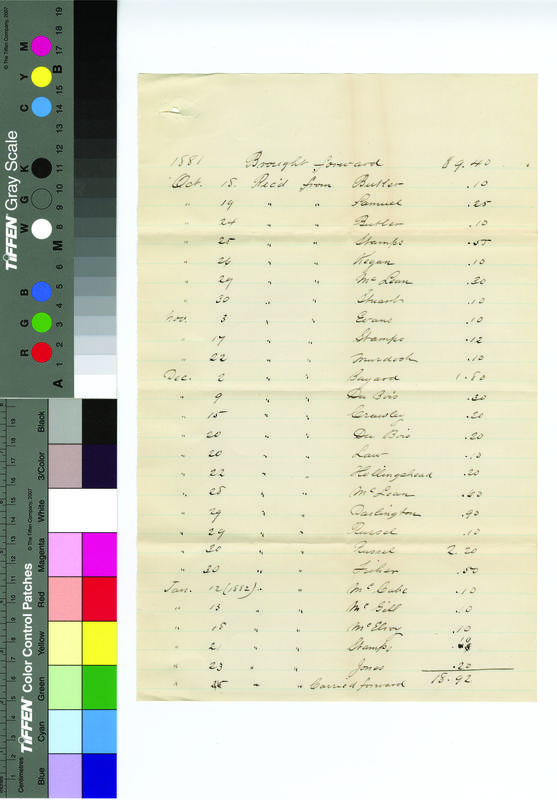 1881 Brought forward 89.40
Oct. 18. Rec'd from Butler .10
" 19 " " Samuel .25
" 24 " " Butler .10
" 25 " " Stamps .55
" 26 " " Kegan .10
" 29 " " McLean .20
" 30 " " Stuart .10
Nov. 3 " " Evans .10
" 17 " " Stamps .12
" 22 " " Murdoch .10
Dec. 2 " " Bayard 1.80
" 9 " " Du Bois .20
" 15 " " Crawley .20
" 20 " " Du Bois .20
" 20 " " Law .10
" 22 " " Hollingshead .20
" 28 " " McLean .60
" 29 " " Darlington .90
" 29 " " Russel .10
" 30 " " Russel 2.20
" 30 " " .50
Jan. 12 (1882) " " McCabe .10
" 13 " " McGill .10
" 18 " " McElroy .10
" 21 " " Stamps .10
" 23 " " Jones .20
" " " Carried forward 18.92
TIFFEN Gray Scale
© The Tiffen Company, 2007
R G B W G K C Y M
A 1 2 3 4 5 6 M 8 9 10 11 12 13 14 15 B 17 18 19
TIFFEN Color Control Patches
© The Tiffen Company, 2007
Centimetres
Blue Cyan Green Yellow Red Magenta White 3/Color Black